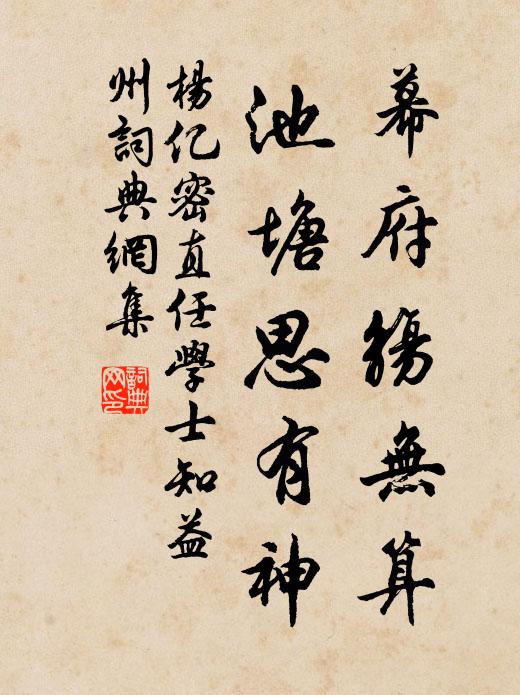 幕府觴無算
池塘思有神
楊亿密直任學士知益
州詞典網集
詞典網印